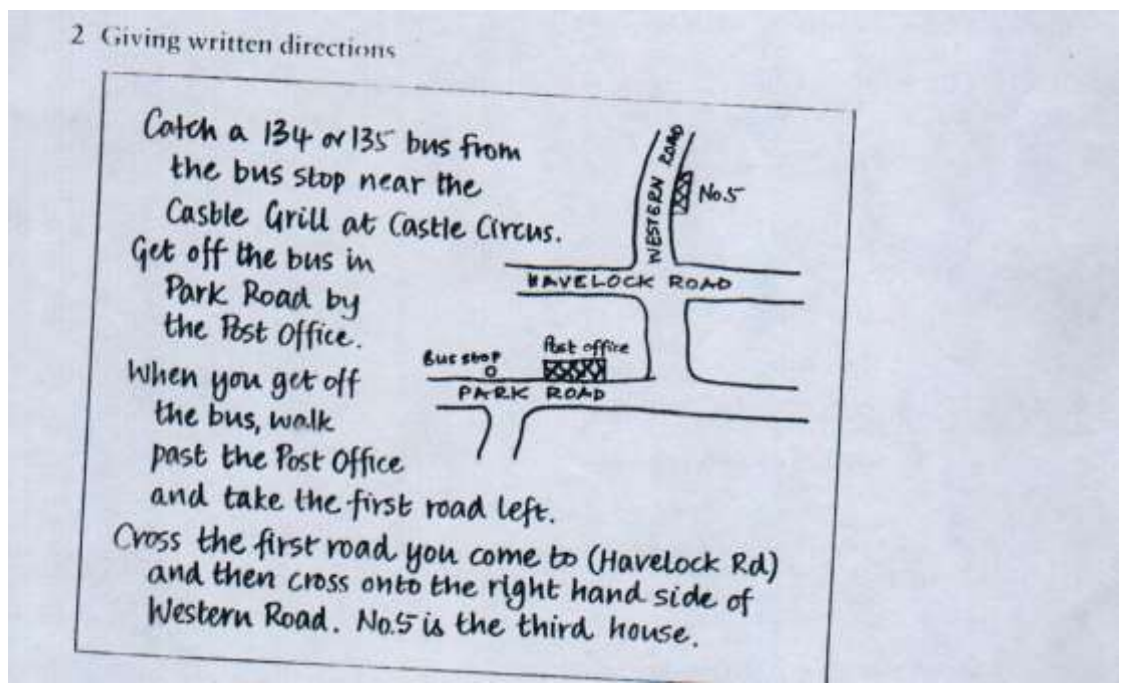 2 Giving written directions
Catch a 134 or 135 bus from
the bus stop near the
Castle Grill at Castle Circus.
Get off the bus in
Park Road by
the Post Office.
When you get off
the bus, walk
past the Post Office
and take the first road left.
Cross the first road you come to (Havelock Rd)
and then cross onto the right hand side of
Western Road. No.5 is the third house.
WESTERN ROAD
No.5
HAVELOCK ROAD
Bus stop
Post office
PARK ROAD